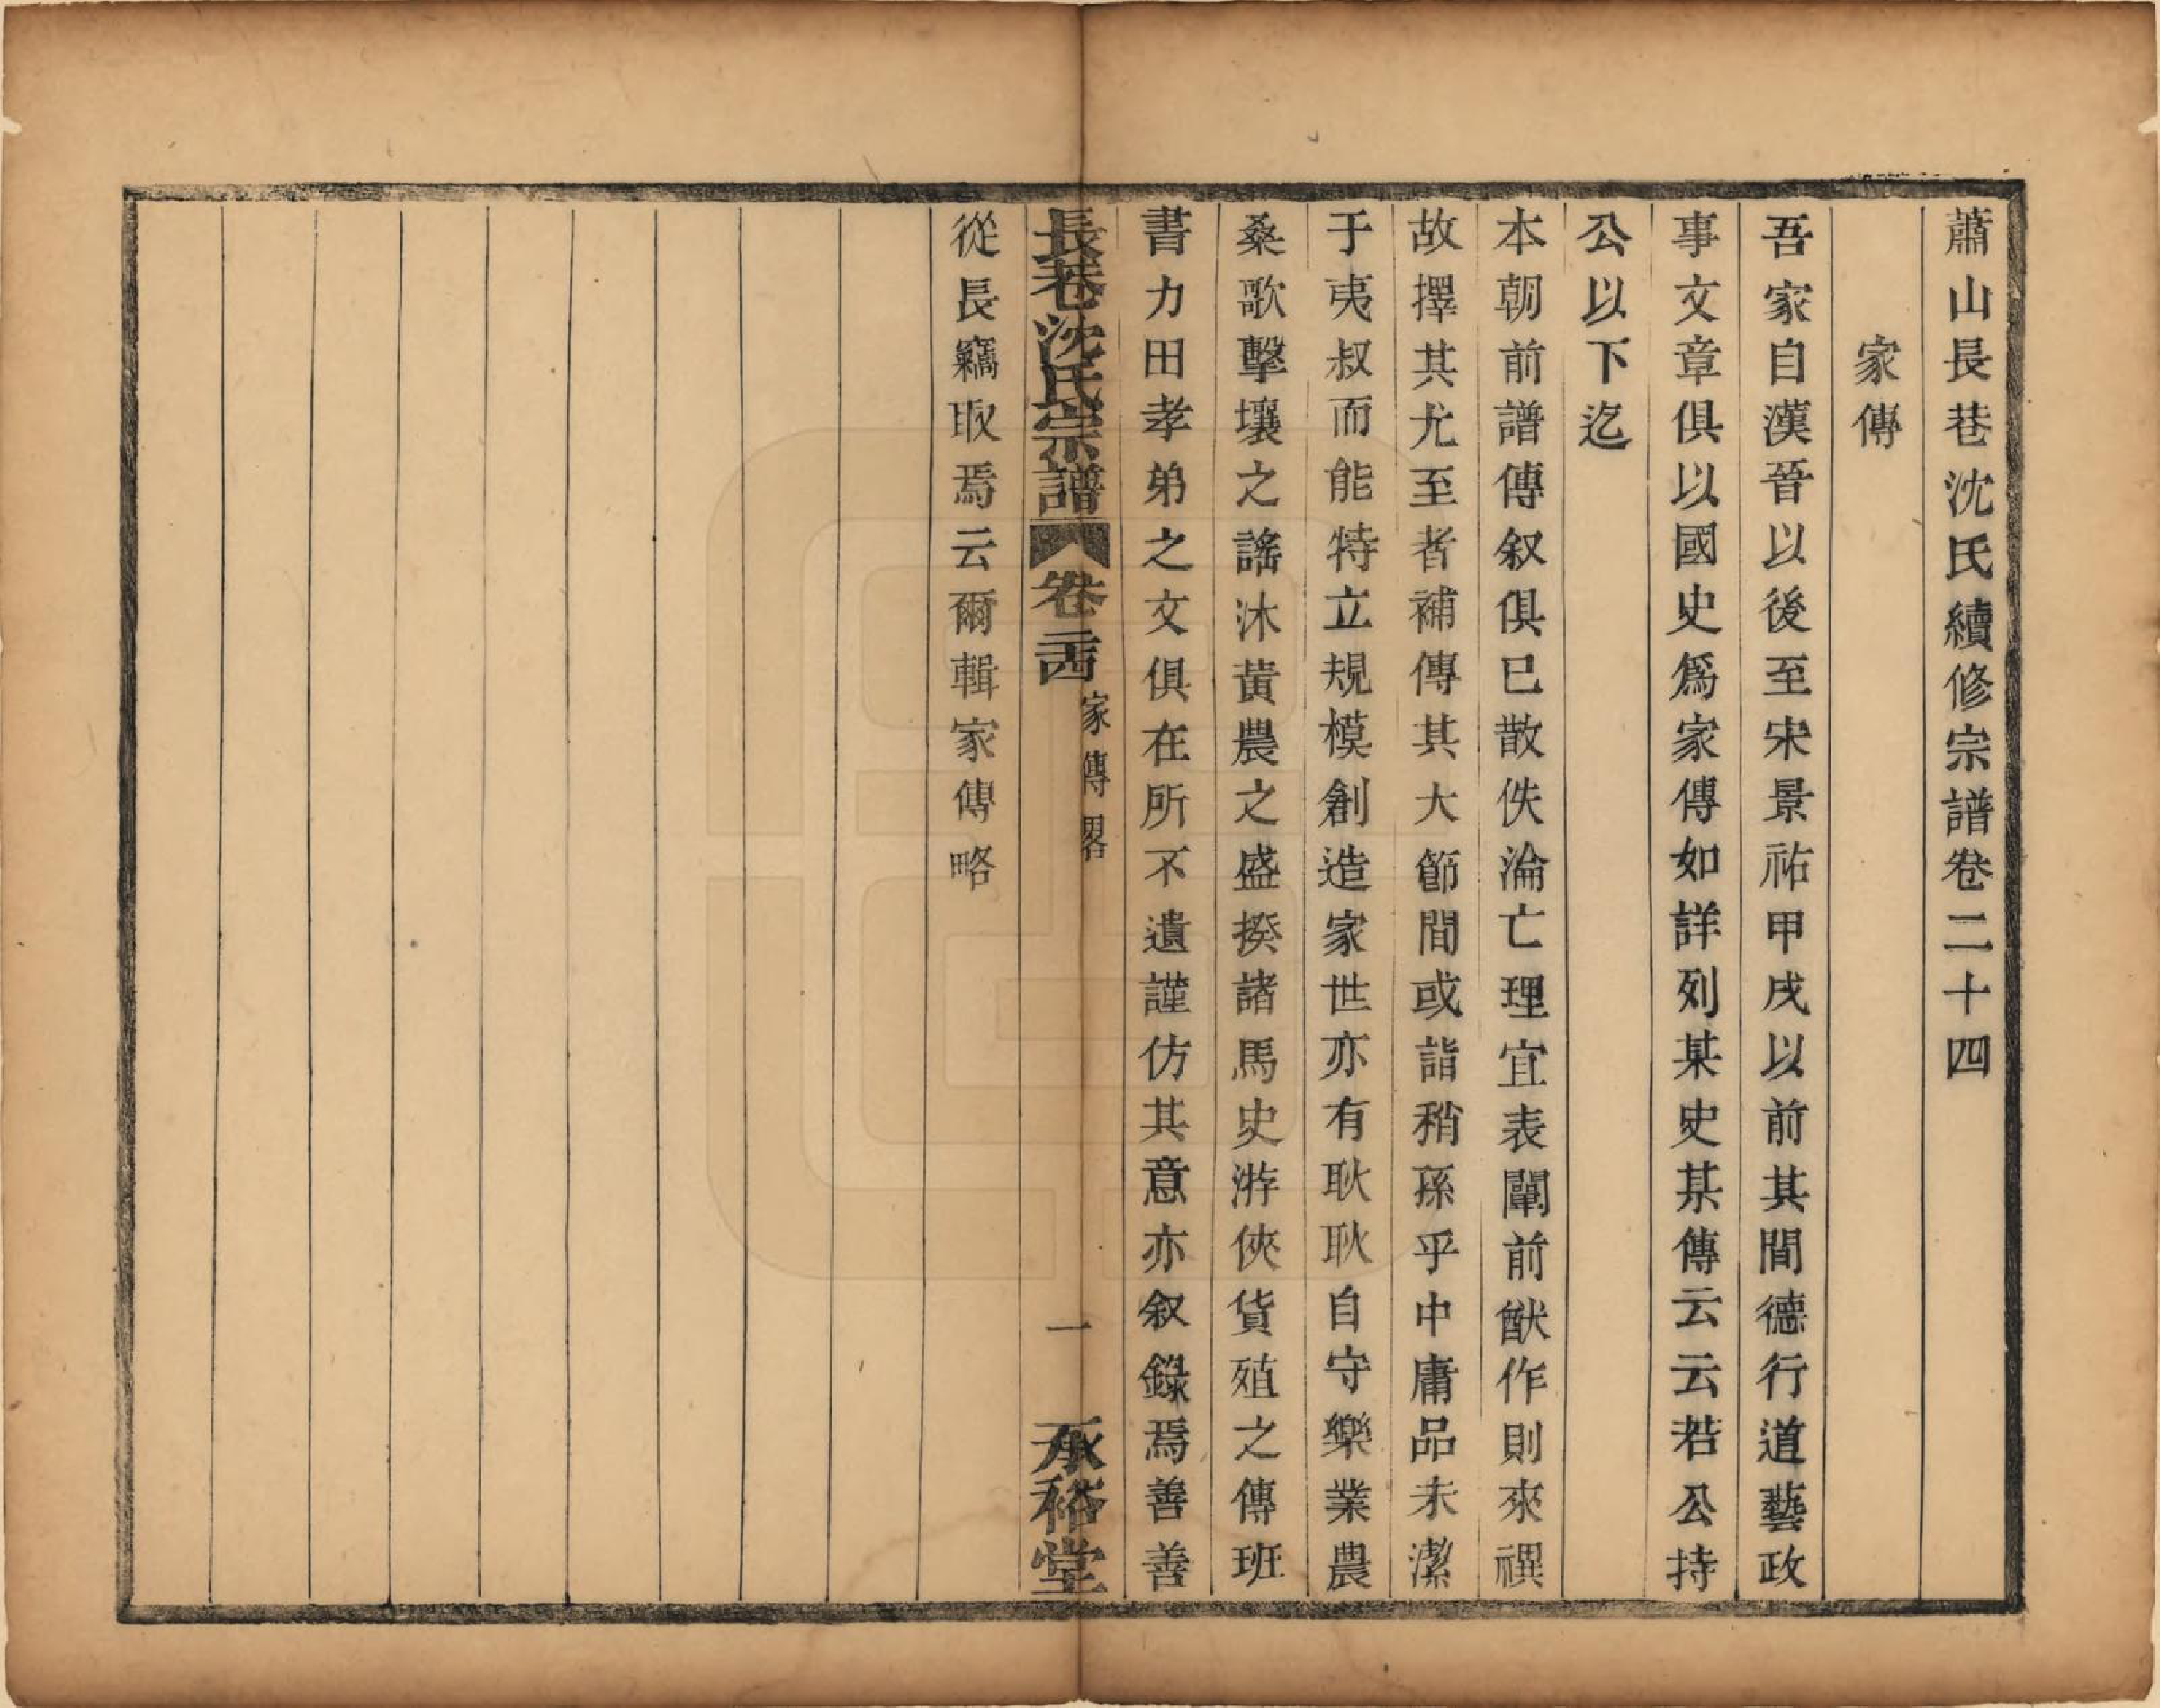 蕭山長巷沈氏續修宗譜卷二十四
家傳
吾家自漢晉以後至宋景祐甲戌以前其間德行道藝政
事文章俱以國史爲家傳如詳列某史某傳云云若公持
公以下迄
本朝前譜傳叙俱已散佚淪亡理宜表闡前猷作則來禩
故擇其尤至者補傳其大節間或詣稍孫乎中庸品未潔
于夷叔而能特立規模創造家世亦有耿耿自守樂業農
桑歌擊壤之謠沐黃農之盛揆諸馬史游俠貨殖之傳班
書力田孝弟之文俱在所不遺謹仿其意亦叙錄焉善善
長巷沈氏宗譜 卷二十四 家傳畧 一 承裕堂
從長竊取焉云爾輯家傳略